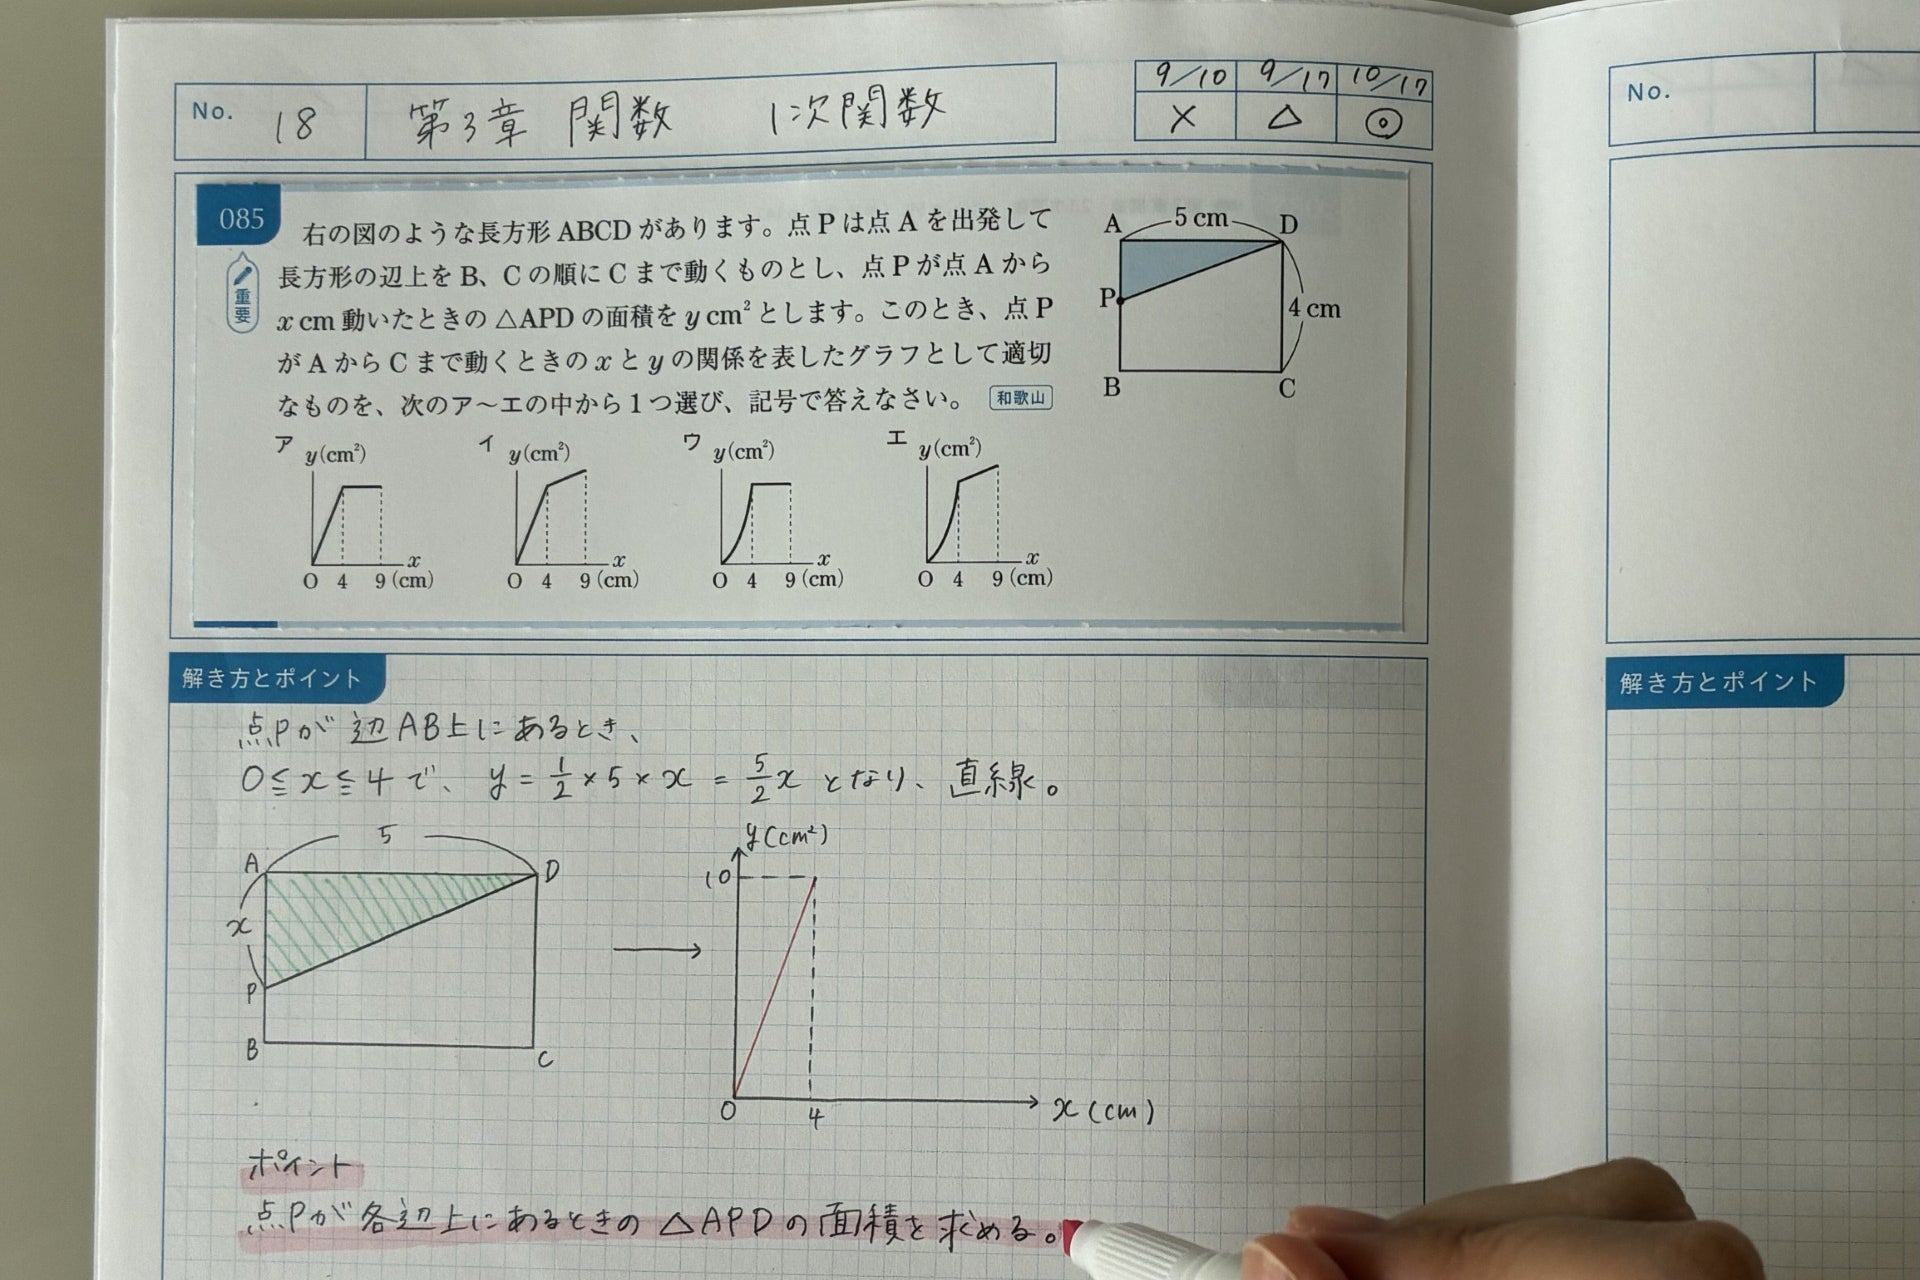 No. 18 第3章 関数 1次関数
9/10 9/17 10/17
× △ ◎
No.
085
重要
右の図のような長方形ABCDがあります。点Pは点Aを出発して
長方形の辺上をB、Cの順にCまで動くものとし、点Pが点Aから
x cm動いたときの△APDの面積をy cm²とします。このとき、点P
がAからCまで動くときのxとyの関係を表したグラフとして適切
なものを、次のア～エの中から1つ選び、記号で答えなさい。 和歌山
A 5 cm D
P 4 cm
B C
ア y(cm²) イ y(cm²) ウ y(cm²) エ y(cm²)
x x x x
O 4 9 (cm) O 4 9 (cm) O 4 9 (cm) O 4 9 (cm)
解き方とポイント
点Pが辺AB上にあるとき、
0≦x≦4で、y=1/2×5×x=5/2xとなり、直線。
5
A D
x
P
B C
y(cm²)
10
O 4 x(cm)
ポイント
点Pが各辺上にあるときの△APDの面積を求める。
解き方とポイント